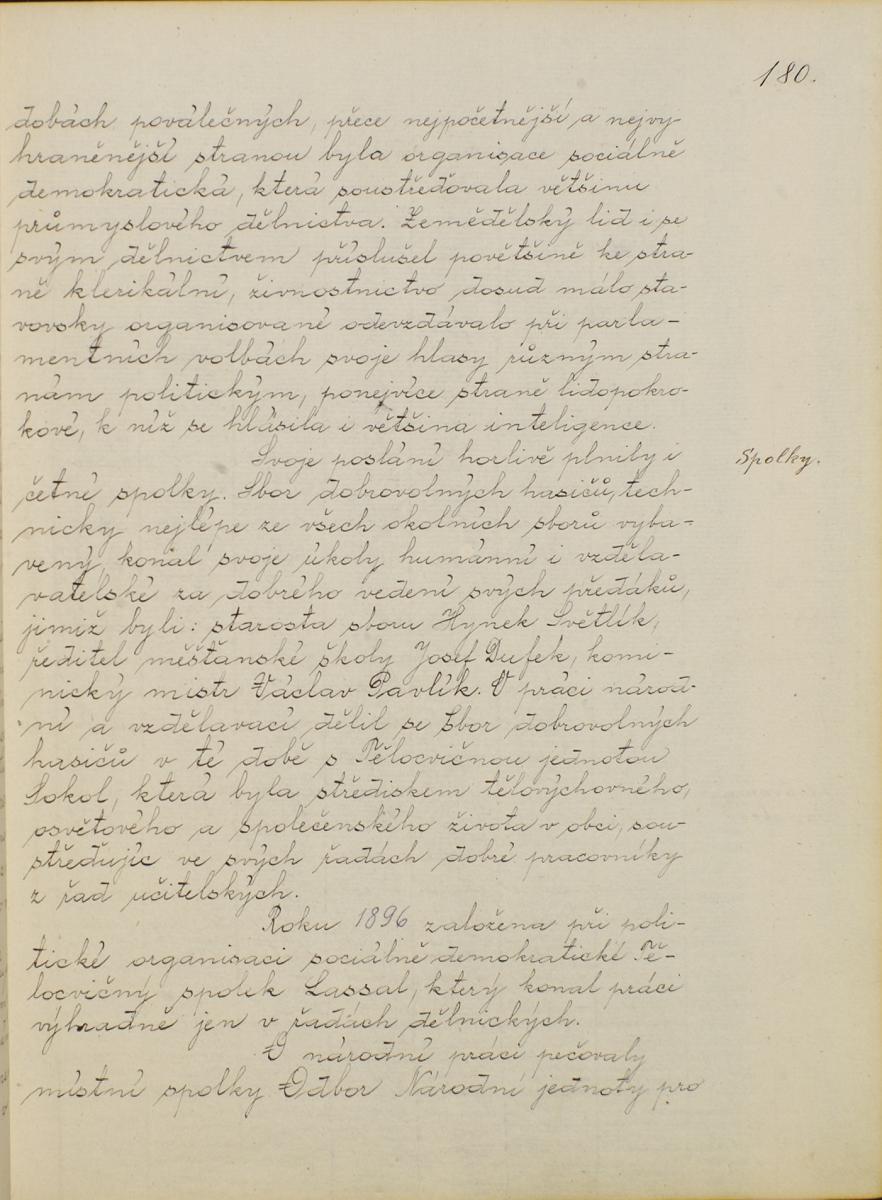 180.
dobách poválečných, přece nejpočetnější a nejvy-
hraněnější stranou byla organisace sociálně
demokratická, která soustřeďovala většinu
průmyslového dělnictva. Zemědělský lid i se
svým dělnictvem příslušel povětšině ke stra-
ně klerikální, živnostnictvo dosud málo sta-
vovsky organisované odevzdávalo při parla-
mentních volbách svoje hlasy různým stra-
nám politickým, ponejvíce straně lidopokro-
kové, k níž se hlásila i většina inteligence.
Svoje poslání horlivě plnily i
Spolky.
četné spolky. Sbor dobrovolných hasičů, tech-
nicky nejlépe ze všech okolních sborů vyba-
vený, konal svoje úkoly humánní i vzděla-
vatelské za dobrého vedení svých předáků,
jimiž byli: starosta sboru Hynek Světlík,
ředitel měšťanské školy Josef Dufek, komi-
nický mistr Václav Pavlík. V práci národ-
ní a vzdělavací dělil se Sbor dobrovolných
hasičů v té době s Tělocvičnou jednotou
Sokol, která byla střediskem tělovýchovného,
osvětového a společenského života v obci, sou-
střeďujíc ve svých řadách dobré pracovníky
z řad učitelských.
Roku 1896 založena při poli-
tické organisaci sociálně demokratické Tě-
locvičný spolek Lassal, který konal práci
výhradně jen v řadách dělnických.
O národní práci pečovaly
místní spolky Odbor Národní jednoty pro